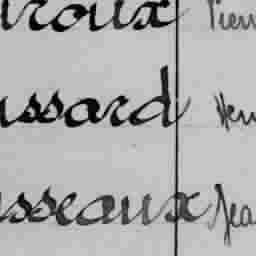 roux Pien
ussard Hen
sseaux Jea